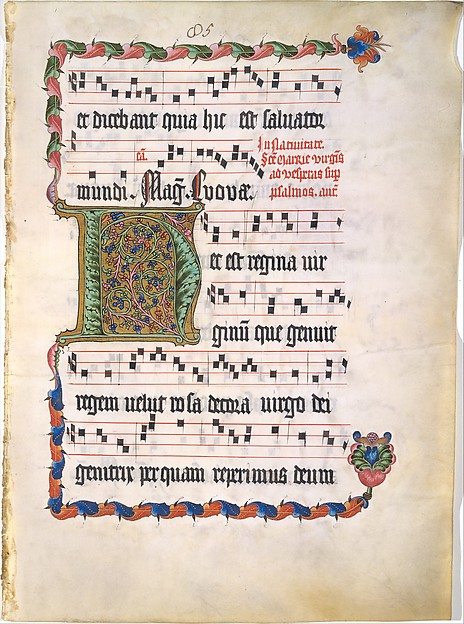 et dicebant quia hic est salvator
mundi. Mag. Evovæ.
In nativitate
Sctē Marie virgīs
ad vesperas sup
psalmos. ant
H
ec est regina vir
ginum que genuit
regem velut rosa decora virgo dei
genitrix per quam reperimus deum